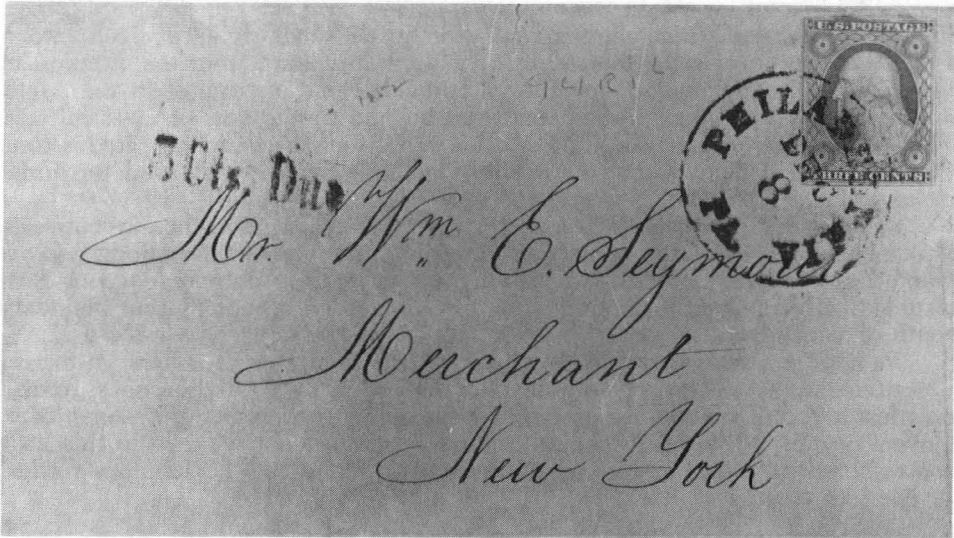 U.S. POSTAGE
THREE CENTS
PHILADELPHIA PA
DEC
8
5 Cts. Due
Mr. Wm. E. Seymour
Merchant
New York